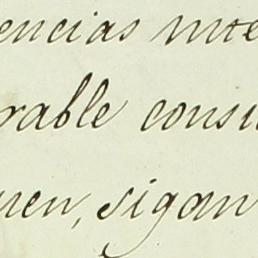 encias inte
rable consi
uen, sigan